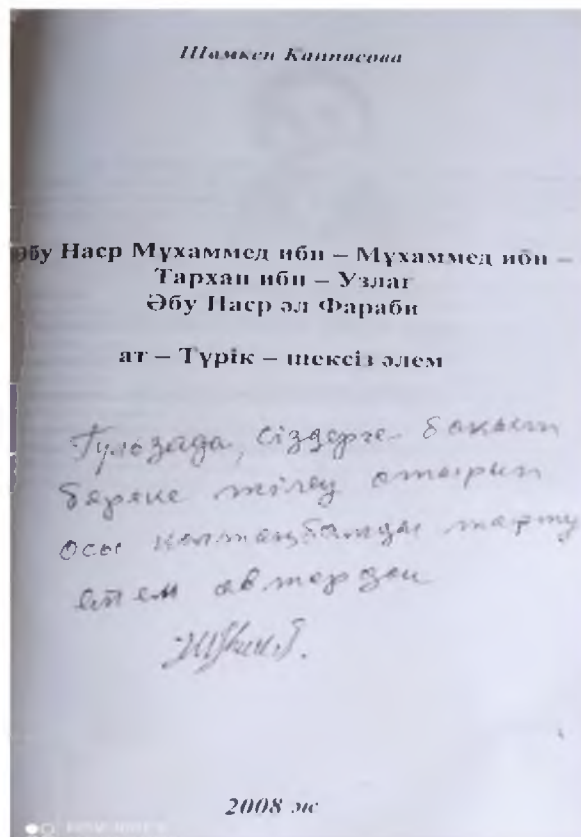 Шамкен Каппасова
Әбу Наср Мұхаммед ибн – Мұхаммед ибн –
Тархан ибн – Узлаг
Әбу Наср әл Фараби
ат – Түрік – шексіз әлем
Гульзада, сіздерге бақыт
береке тілеу отырып
осы қолтаңбамды тарту
етем автордан
2008 ж